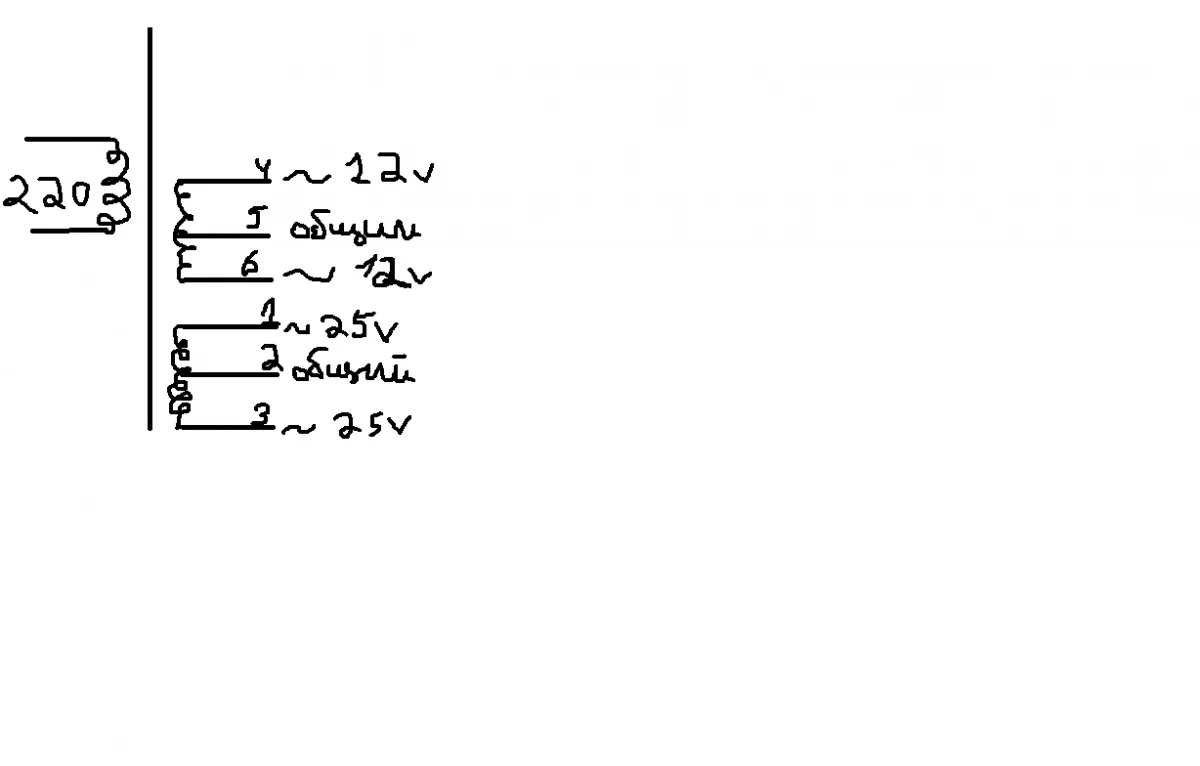 4 ~ 12v
220
5 общий
6 ~ 12v
1 ~ 25v
2 общий
3 ~ 25v